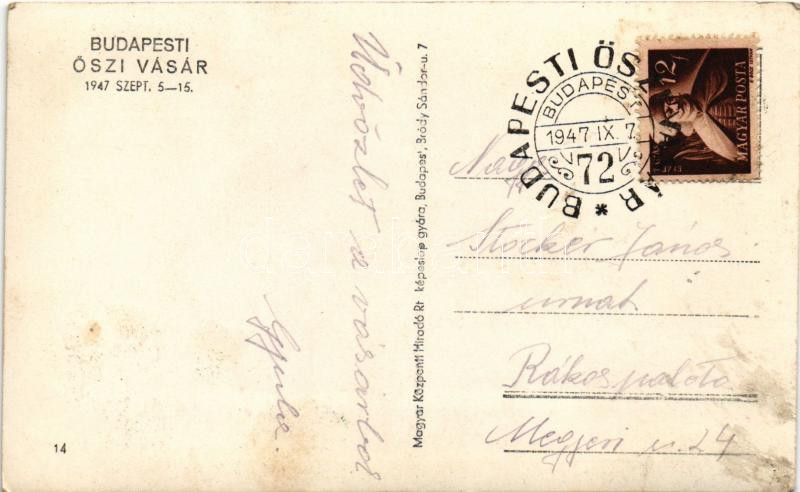 BUDAPESTI
ŐSZI VÁSÁR
1947 SZEPT. 5—15.
Üdvözlet a vásárból
Gyula.
14
Magyar Központi Híradó Rt képeslap gyára, Budapest, Bródy Sándor-u. 7
BUDAPESTI ŐSZI VÁSÁR *
BUDAPEST
1947 IX. 7.
72
12f
MAGYAR POSTA
Stocker János
urnak
Rákospalota
Megyeri u. 24